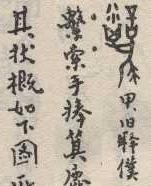 甲.旧释僕
索手捧箕
其状概如下圖